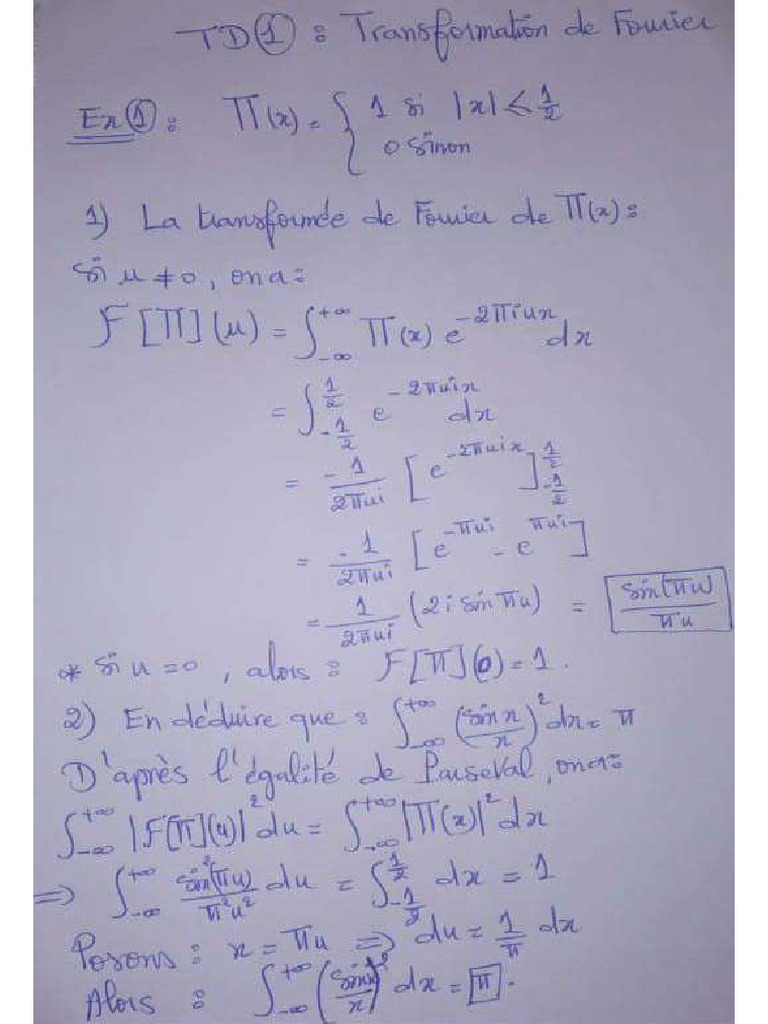 TD① : Transformation de Fourier
Ex① : Π(x) = { 1 si |x| ≤ 1/2
0 sinon
1) La transformée de Fourier de Π(x) :
Si u ≠ 0, on a :
F[Π](u) = ∫_{-∞}^{+∞} Π(x) e^{-2πiux} dx
= ∫_{-1/2}^{1/2} e^{-2πuix} dx
= -1/(2πui) [e^{-2πuix}]_{-1/2}^{1/2}
= -1/(2πui) [e^{-πui} - e^{πui}]
= 1/(2πui) (2i sin πu) = sin(πu)/(πu)
* Si u = 0, alors : F[Π](0) = 1.
2) En déduire que : ∫_{-∞}^{+∞} (sin x/x)² dx = π
D'après l'égalité de Parseval, on a :
∫_{-∞}^{+∞} |F[Π](u)|² du = ∫_{-∞}^{+∞} |Π(x)|² dx
⇒ ∫_{-∞}^{+∞} sin²(πu)/(π²u²) du = ∫_{-1/2}^{1/2} dx = 1
Posons : x = πu ⇒ du = 1/π dx
Alors : ∫_{-∞}^{+∞} (sin x/x)² dx = π.